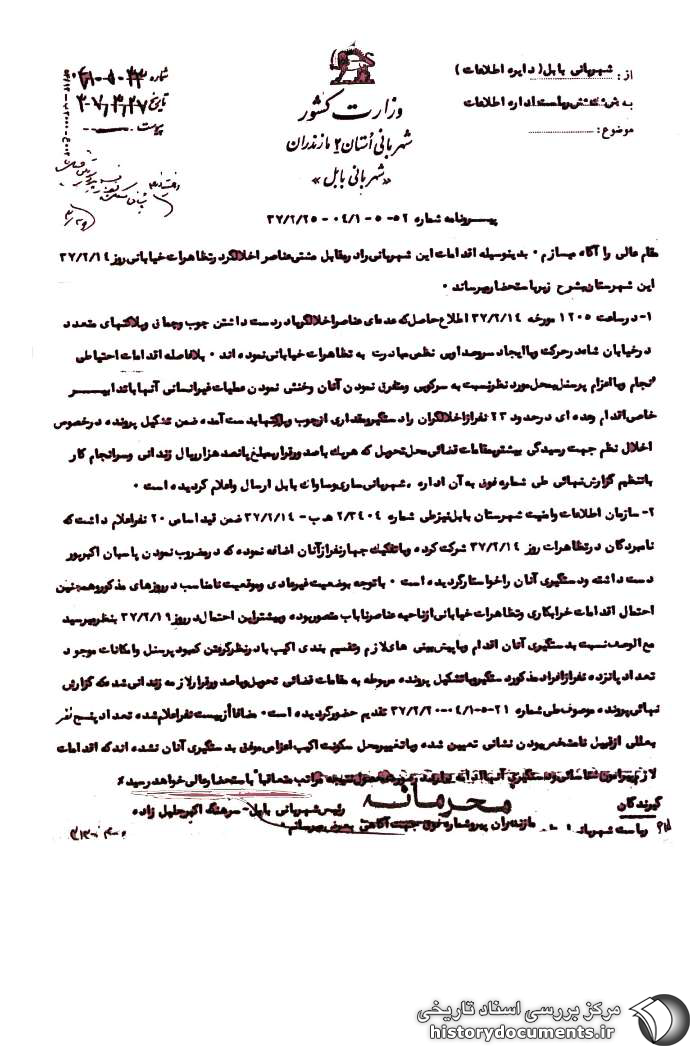 از: شهربانی بابل (دایره اطلاعات)
به ریاست اداره اطلاعات
موضوع:
وزارت کشور
شهربانی اُستان ۲ مازندران
«شهربانی بابل»
شماره
تاریخ
پیوست
پیرونامه شماره ۵۲-۵-۰۴/۱-۳۷/۲/۲۵
مقام عالی را آگاه میسازم۰ بدینوسیله اقدامات این شهربانی رادرمقابل مشتی عناصر اخلالگردرتظاهرات خیابانی روز ۳۷/۲/۱۴
این شهرستان بشرح زیرباستحضارمیرساند۰
۱- درساعت ۱۲۰۵ مورخه ۳۷/۲/۱۴ اطلاع حاصل که عده‌ای عناصراخلالگربادردست داشتن چوب وچماق وپلاکتهای متعدد
درخیابان شاه درحرکت وباایجاد سروصداوبی نظمی مبادرت به تظاهرات خیابانی نموده اند۰ بلافاصله اقدامات احتیاطی
انجام وبااعزام پرسنل بمحل مورد نظرنسبت به سرکوبی ومتفرق نمودن آنان وخنثی نمودن عملیات غیرانسانی آنهاباتدابیر
خاصی اقدام وعده ای درحدود ۲۳ نفرازاخلالگران رادستگیرومقداری ازچوب وپلاکتهابدست آمده ضمن تشکیل پرونده درخصوص
اخلال نظم جهت رسیدگی بیشتربمقامات قضائی محل تحویل که هریک باصدورقراربمبلغ پانصد هزارریال زندانی وسرانجام کار
باتنظیم گزارش نهائی طی شماره فوق به آن اداره ، شهربانی ساری وساواک بابل ارسال واعلام گردیده است۰
۲- سازمان اطلاعات وامنیت شهرستان بابل نیزطی شماره ۲/۳۴۰۴ ه‍ ب - ۳۷/۲/۱۴ ضمن قیداسامی ۲۰ نفراعلام داشت که
نامبردگان درتظاهرات روز ۳۷/۲/۱۴ شرکت کرده وباتفکیک چهارنفرازآنان اضافه نموده که درمضروب نمودن پاسبان اکبرپور
دست داشته ودستگیری آنان راخواستارگردیده است۰ باتوجه بوضعیت غیرعادی وموقعیت نامناسب درروزهای مذکوروهمچنین
احتمال اقدامات خرابکاری وتظاهرات خیابانی ازناحیه عناصرناباب متصوربوده وبیشتراین احتمال درروز ۳۷/۲/۱۹ بنظرمیرسید
مع الوصف نسبت بدستگیری آنان اقدام وباپیش بینی های لازم وتقسیم بندی اکیپ بادرنظرگرفتن کمبود پرسنل وامکانات موجود
تعداد پانزده نفرازافراد مذکوردستگیروباتشکیل پرونده مربوطه به مقامات قضائی تحویل وباصدورقرارلازمه زندانی شدند که گزارش
نهائی پرونده موصوف طی شماره ۲۱-۵-۰۴/۱-۳۷/۲/۲۰ تقدیم حضورگردیده است۰ مضافاً ازبیست نفراعلام شده تعداد پنج نفر
بعللی ازقبیل نامشخص بودن نشانی تعیین شده وباتغییرمحل سکونت اکیپ اعزامی موفق به دستگیری آنان نشده اندکه اقدامات
لازم پیرامون شناسائی ودستگیری آنها ادامه مراتب متعاقباً باستحضارعالی خواهدرسید
محرمانه
رئیس شهربانی بابل - سرهنگ اکبرجلیل زاده
گیرندگان
ریاست شهربانی مازندران پیروشماره فوق جهت آگاهی
مرکز بررسی اسناد تاریخی
historydocuments.ir